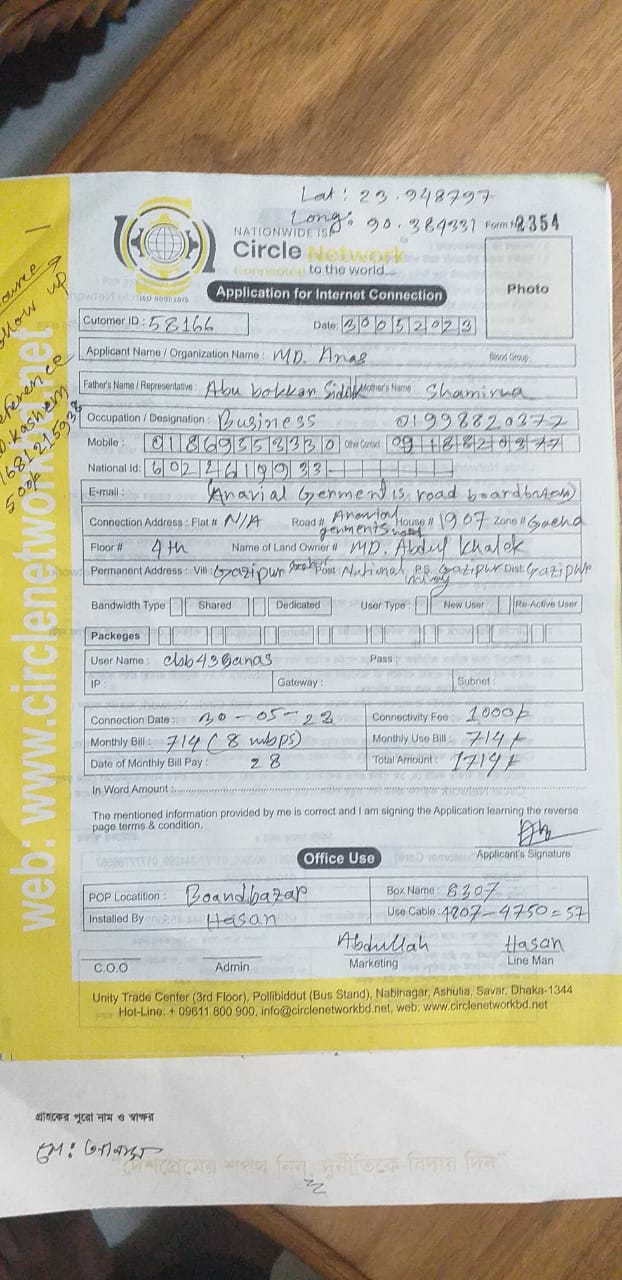 Lat: 23.948797
Long: 90.384331 Form # 2354
NATIONWIDE ISP
Circle Network
Connected to the world...
ISO 9001:2015
Application for Internet Connection
Photo
Cutomer ID : 58166 Date: 30052023
Applicant Name / Organization Name : MD. Anas Blood Group
Father's Name / Representative : Abu bokkar Siddik Mother's Name : Shamirna
Occupation / Designation : Business 01998820377
Mobile : 01869353330 Other Contact
National Id: 6022619933
E-mail : (Anarial Germents road boardbazar)
Connection Address : Flat # N/A Road # House # 1907 Zone # Gacha
Floor# 4th Name of Land Owner # MD. Abdul Khalek
Permanent Address : Vill: Gazipur Post: National P.S. Gazipur Dist: Gazipur
Bandwidth Type Shared Dedicated User Type : New User Re-Active User
Packeges
User Name : Pass :
IP : Gateway : Subnet :
Connection Date : 30-05-23 Connectivity Fee : 1000/-
Monthly Bill : 714 (8 mbps) Monthly Use Bill : 714/-
Date of Monthly Bill Pay : 28 Total Amount : 1714/-
In Word Amount :
The mentioned information provided by me is correct and I am signing the Application learning the reverse
page terms & condition.
Applicant's Signature
Office Use
POP Locatition : Boardbazar Box Name : 8307
Installed By Hasan Use Cable : 4807-4750=57
Abdullah Hasan
C.O.O Admin Marketing Line Man
Unity Trade Center (3rd Floor), Pollibiddut (Bus Stand), Nabinagar, Ashulia, Savar, Dhaka-1344
Hot-Line: + 09611 800 900, info@circlenetworkbd.net, web: www.circlenetworkbd.net
web: www.circlenetworkbd.net
গ্রাহকের পুরো নাম ও স্বাক্ষর
মো: আনাস
"দেশপ্রেমের শপথ নিন, দুর্নীতিকে বিদায় দিন"